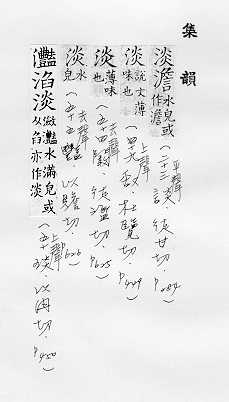 集韻
淡澹 水皃或作澹 (平聲 二十三談 徒甘切. P284)
淡 說文薄味也 (上聲 四九敢 杜覽切. P449)
淡 薄味也 (去聲 五十四闞. 徒濫切. P625)
淡 水皃 (去聲 五十五豔. 以贍切. P626)
灩淊淡 潋灩水滿皃或从臽亦作淡 (上聲 五十琰. 以冉切. P450)